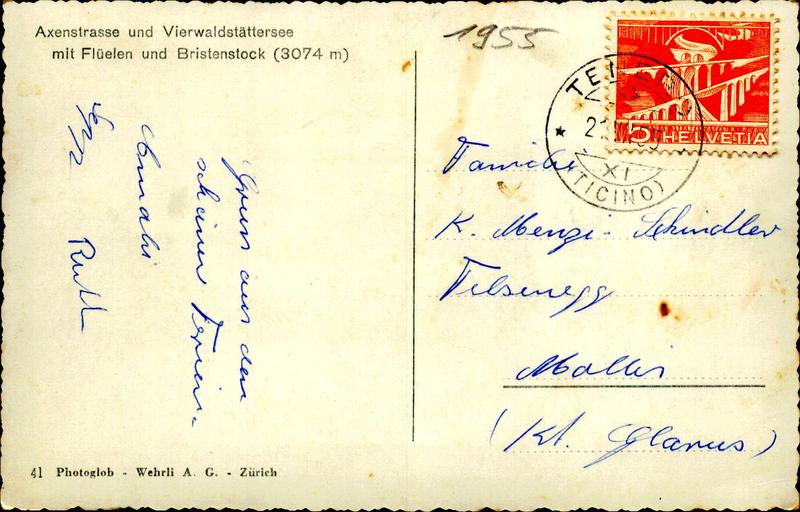 Axenstrasse und Vierwaldstättersee
mit Flüelen und Bristenstock (3074 m)
1955
5 HELVETIA
XI
(TICINO)
Gruss aus den
schönen Ferien.
Ruth
Familie
K. Menzi-Schindler
Felsenegg
Mollis
(Kt. Glarus)
41 Photoglob - Wehrli A. G. - Zürich